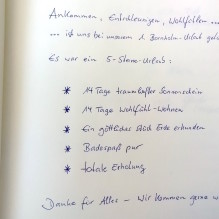 Ankommen, Entschleunigen, Wohlfühlen ...
... ist uns bei unserem 1. Bornholm-Urlaub
Es war ein 5-Sterne-Urlaub:
* 14 Tage traumhafter Sonnenschein
* 14 Tage Wohlfühl-Wohnen
* Ein göttliches Stück Erde erkunden
* Badespaß pur
* totale Erholung
Danke für Alles - Wir kommen gerne